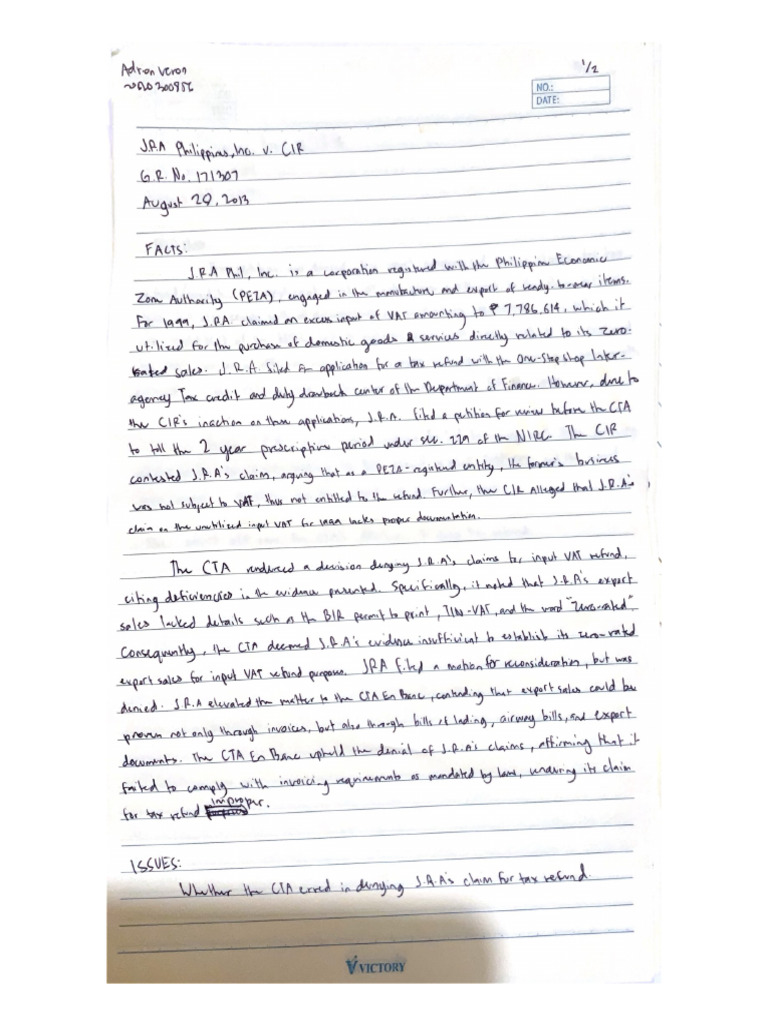 Adrian Veron
1/2
NO.:
DATE:
J.R.A Philippines, Inc. v. CIR
G.R. No. 171307
August 28, 2013
FACTS:
J.R.A Phil, Inc. is a corporation registered with the Philippine Economic
Zone Authority (PEZA), engaged in the manufacture and export of ready-to-wear items.
For 1999, J.R.A claimed an excess input of VAT amounting to ₱ 7,786,614, which it
utilized for the purchase of domestic goods & services directly related to its zero-
rated sales. J.R.A. filed an application for a tax refund with the One-Stop shop Inter-
agency Tax credit and duty drawback center of the Department of Finance. However, due to
the CIR's inaction on these applications, J.R.A. filed a petition for review before the CTA
to toll the 2 year prescriptive period under sec. 229 of the NIRC. The CIR
contested J.R.A's claim, arguing that as a PEZA-registered entity, the former's business
was not subject to VAT, thus not entitled to the refund. Further, the CIR alleged that J.R.A's
claim on the unutilized input VAT for 1999 lacks proper documentation.
The CTA rendered a decision denying J.R.A's claims for input VAT refund,
citing deficiencies in the evidence presented. Specifically, it noted that J.R.A's export
sales lacked details such as the BIR permit to print, TIN-VAT, and the word "zero-rated".
Consequently, the CTA deemed J.R.A's evidence insufficient to establish its zero-rated
export sales for input VAT refund purposes. JRA filed a motion for reconsideration, but was
denied. J.R.A elevated the matter to the CTA En Banc, contending that export sales could be
proven not only through invoices, but also through bills of lading, airway bills, and export
documents. The CTA En Banc upheld the denial of J.R.A's claims, affirming that it
failed to comply with invoicing requirements as mandated by law, rendering its claim
for tax refund improper.
ISSUES:
Whether the CTA erred in denying J.R.A's claim for tax refund.
VICTORY